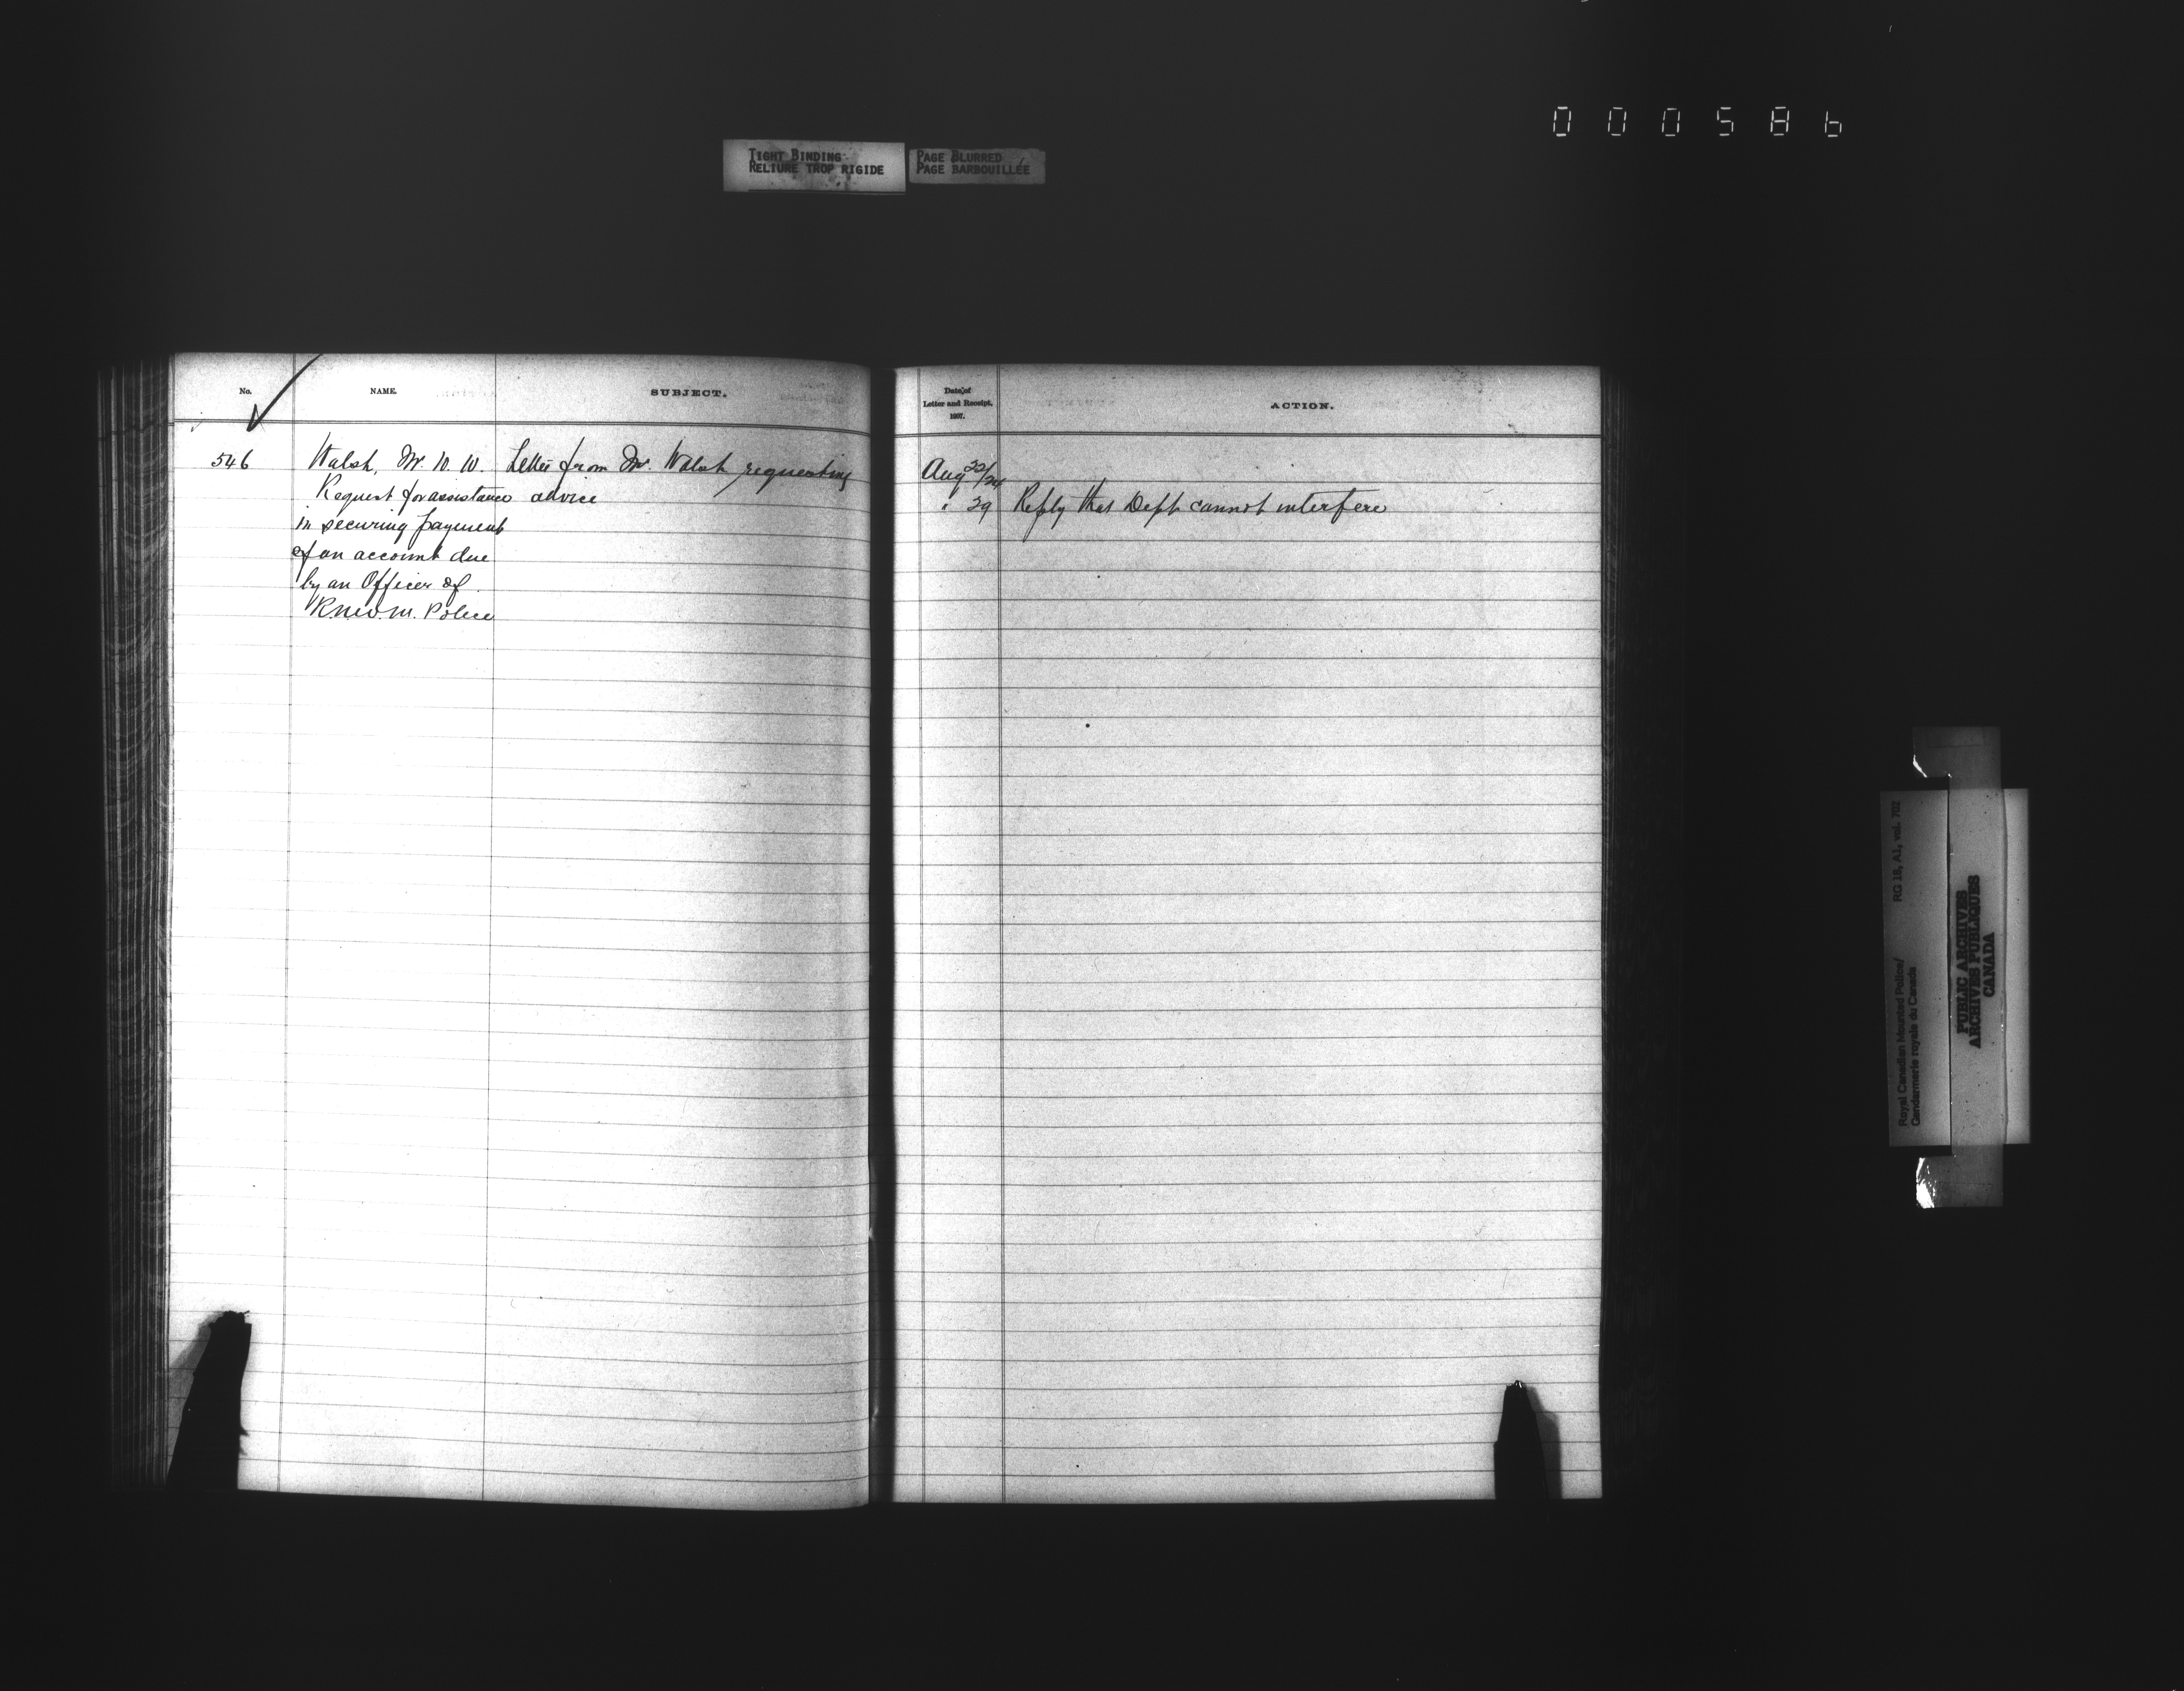 000586
TIGHT BINDING
RELIURE TROP RIGIDE
PAGE BLURRED
PAGE BARBOUILLÉE
No.
NAME.
SUBJECT.
Date of
Letter and Receipt.
1907.
ACTION.
546 Walsh, Mr. W. W. Letter from Mr. Walsh requesting
Request for assistance advice
in securing payment
of an account due
by an Officer of
R.N.W.M. Police
Aug 22/24
" 29 Reply that Dept cannot interfere
Royal Canadian Mounted Police/ RG 18, A1, vol. 702
Gendarmerie royale du Canada
PUBLIC ARCHIVES
ARCHIVES PUBLIQUES
CANADA